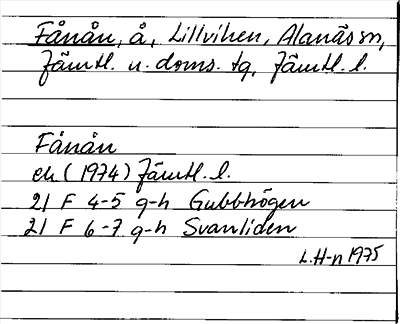 Fånån, å, Lillviken, Alanäs sn,
Jämtl. n. doms. tg, Jämtl. l.
Fånån
ek (1974) Jämtl. l.
21 F 4-5 g-h Gubbhögen
21 F 6-7 g-h Svanliden
L.H-n 1975